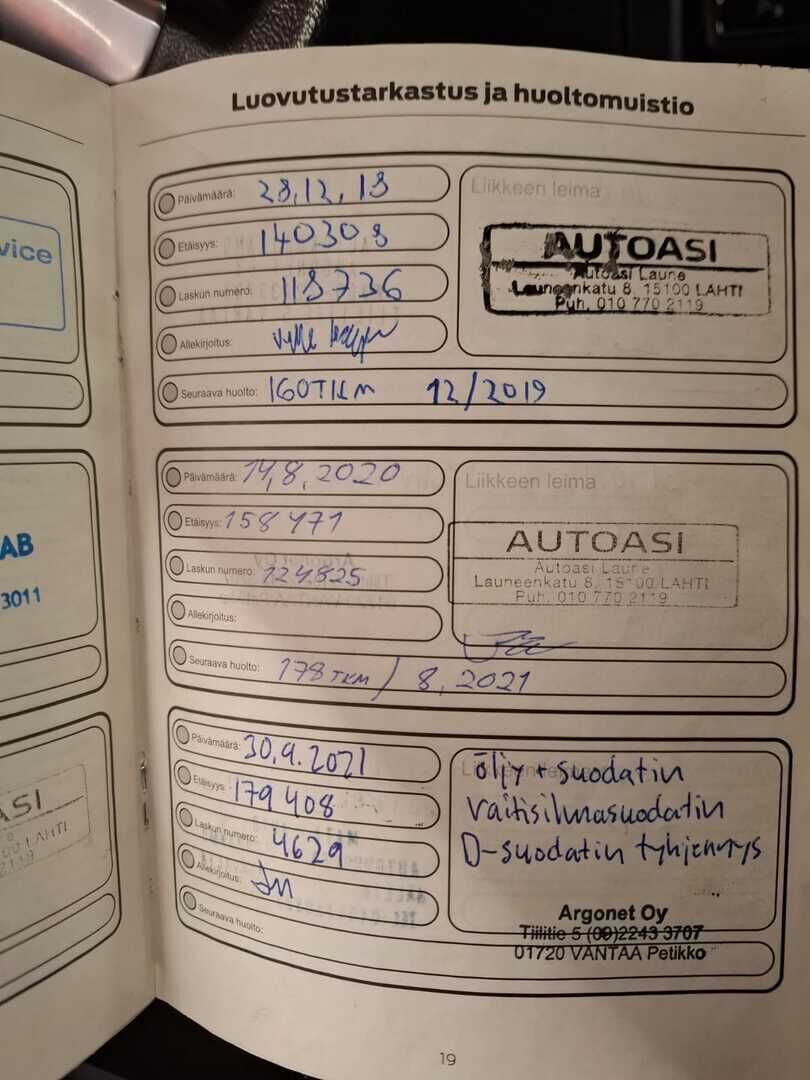 Luovutustarkastus ja huoltomuistio
vice
AB
3011
ASI
Päivämäärä: 28.12.18
Etäisyys: 140308
Laskun numero: 118736
Allekirjoitus:
Seuraava huolto: 160TKM 12/2019
Liikkeen leima
AUTOASI
Autoasi Laune
Launeenkatu 8, 15100 LAHTI
Puh. 010 770 2119
Päivämäärä: 14,8,2020
Etäisyys: 158471
Laskun numero: 124825
Allekirjoitus:
Seuraava huolto: 178TKM / 8,2021
Liikkeen leima
AUTOASI
Autoasi Laune
Launeenkatu 8, 15100 LAHTI
Puh. 010 770 2119
Päivämäärä: 30.9.2021
Etäisyys: 179408
Laskun numero: 4629
Allekirjoitus:
Seuraava huolto:
öljy + suodatin
raitisilmasuodatin
D-suodatin tyhjennys
Argonet Oy
Tiilitie 5 (09)2243 3707
01720 VANTAA Petikko
19